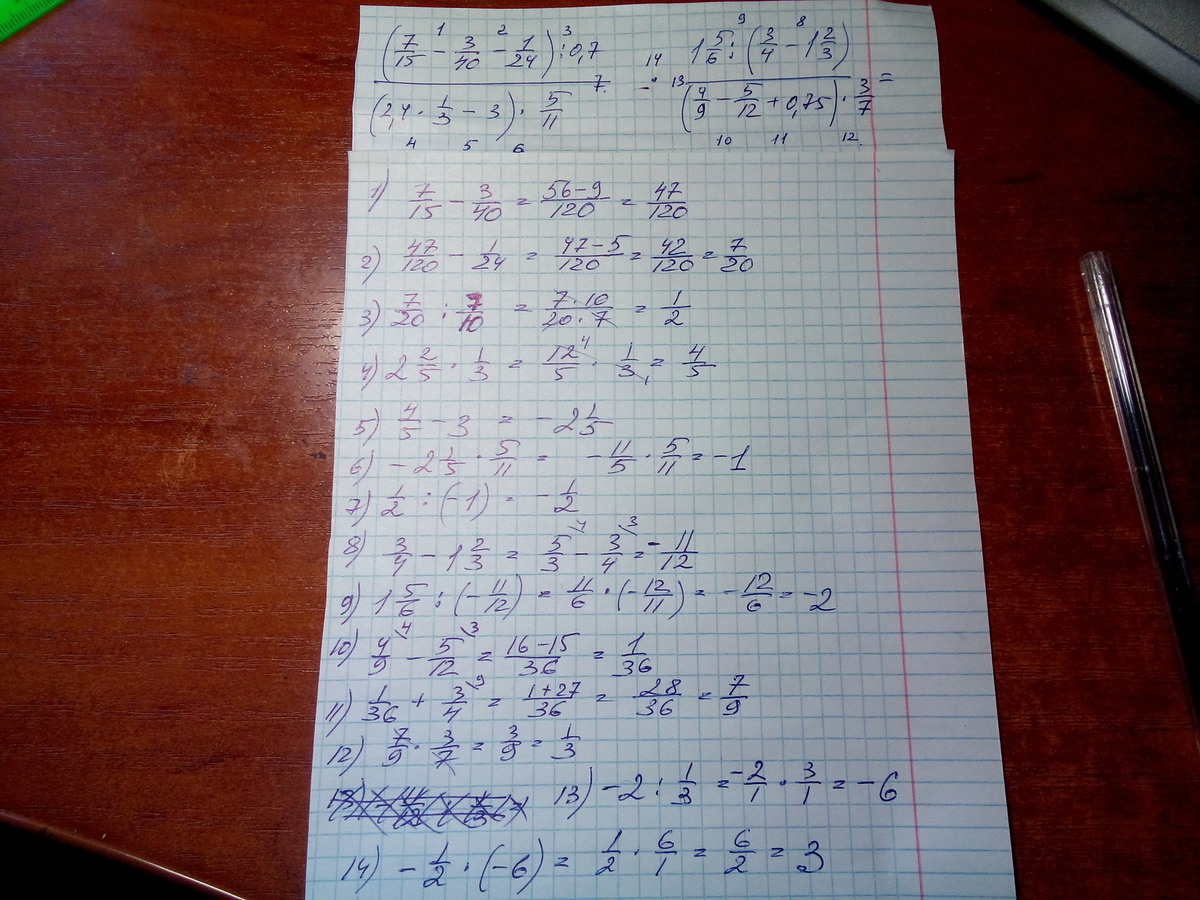 (7/15 - 3/40 - 1/24) : 0,7 / (2,4 · 1/3 - 3) · 5/11 · 1 5/6 : (3/4 - 1 2/3) / (4/9 - 5/12 + 0,75) · 3/7 =
1) 7/15 - 3/40 = 56-9/120 = 47/120
2) 47/120 - 1/24 = 47-5/120 = 42/120 = 7/20
3) 7/20 : 7/10 = 7·10/20·7 = 1/2
4) 2 2/5 · 1/3 = 12/5 · 1/3 = 4/5
5) 4/5 - 3 = -2 1/5
6) -2 1/5 · 5/11 = -11/5 · 5/11 = -1
7) 1/2 : (-1) = -1/2
8) 3/4 - 1 2/3 = 5/3 - 3/4 = -11/12
9) 1 5/6 : (-11/12) = 11/6 · (-12/11) = -12/6 = -2
10) 4/9 - 5/12 = 16-15/36 = 1/36
11) 1/36 + 3/4 = 1+27/36 = 28/36 = 7/9
12) 7/9 · 3/7 = 3/9 = 1/3
13) -2 : 1/3 = -2/1 · 3/1 = -6
14) -1/2 · (-6) = 1/2 · 6/1 = 6/2 = 3